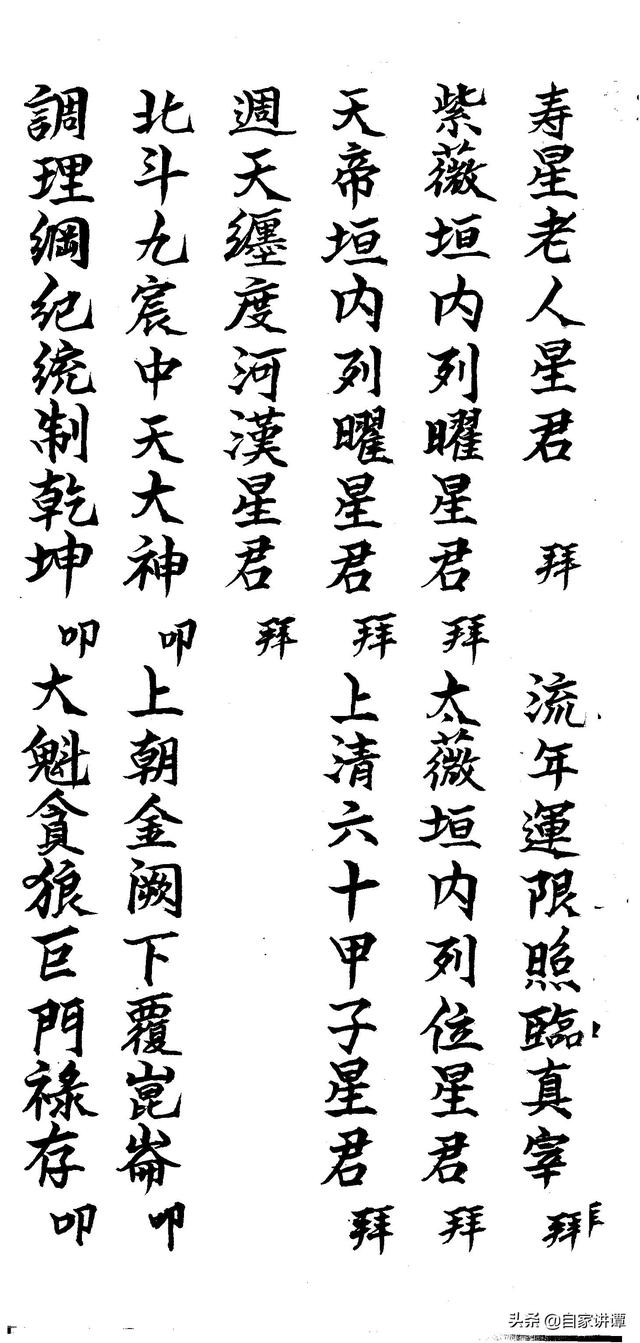 寿星老人星君 拜 流年運限照臨真宰 拜
紫薇垣内列曜星君 拜 太薇垣内列位星君 拜
天帝垣内列曜星君 拜 上清六十甲子星君 拜
週天纏度河漢星君 拜
北斗九宸中天大神 叩 上朝金阙下覆崑崙 叩
調理綱纪統制乾坤 叩 大魁貪狼巨門祿存 叩
头条 @自家讲谭